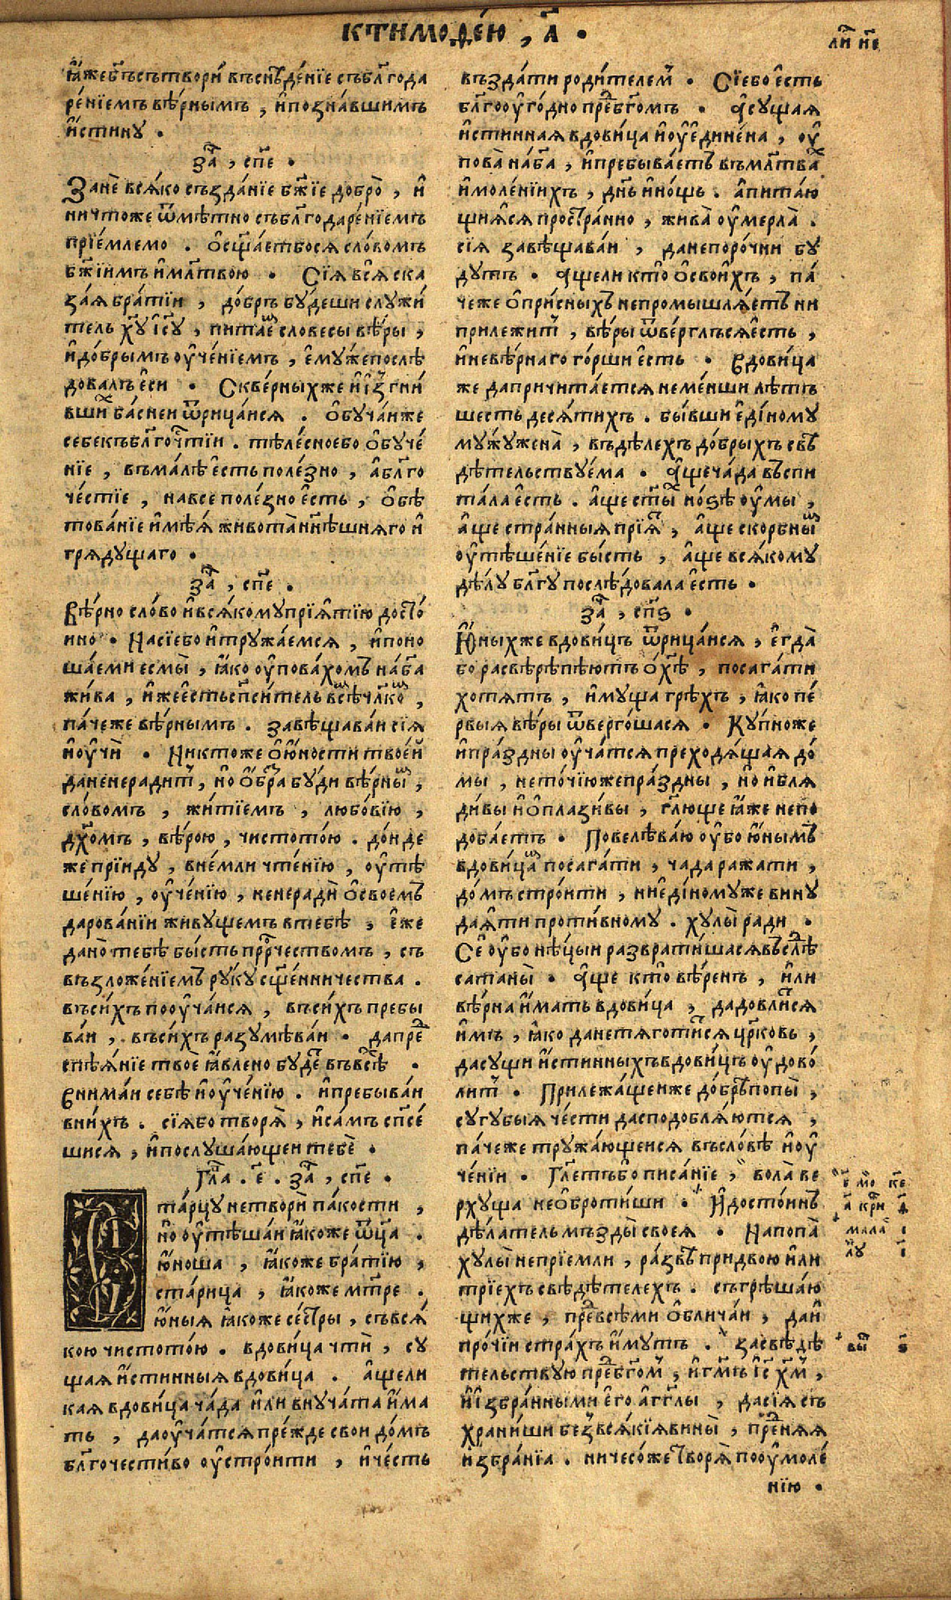 к тимоѳею , а҃ .
ли́ст н҃є
ꙗ҆́же бг҃ъ сътворѝ въ снѣде́нїе съ бл҃года
ре́нїемъ вѣ́рнымъ , и҆ позна́вшимъ
и҆́стину .
за҃ , сп҃є .
Занѐ всѧ́ко създа́нїе бж҃їе добро̀ , и҆
ничто́же ѿмѣ́тно съ бл҃годаре́нїемъ
прїе́млемо . ѡ҆сщ҃а́етбосѧ сло́вомъ
бж҃їимъ и҆ мл҃твою . Сїѧ̀ всѧ̀ ска
за́ѧ бра́тїи , до́брѣ бу́деши служи́
тель хв҃ꙋ і҆с҃ꙋ , пита́емь словесы вѣ́ры ,
и҆ до́брымъ ᲂу҆че́нїемъ , є҆мꙋ́же послѣ́
довалъ є҆сѝ . Скве́рных же и҆ і҆ꙁгни́
вших ба́снеи ѿрица́исѧ . Ѻ҆буча́и же
себе къ бл҃гоч҃тїи . тѣле́сное бо ѻ҆буче́
нїе , въ ма́лѣ є҆сть поле́зно , а҆ бл҃го
че́стїе , на все поле́зно є҆́сть , ѻ҆бѣ
това́нїе и҆мѣ́ѧ живота̀ нн҃ѣшнѧго и҆
грѧду́щаго .
за҃ , сп҃є .
Вѣ́рно сло́во и҆ всѧ́кому прїѧ́тїю досто́
ино . На сїе́ бо и҆ тружа́емсѧ , и҆ поно
ша́еми есмы̀ , ꙗ҆́ко ᲂу҆пова́хомъ на бг҃а
жи́ва , и҆́же є҆́сть сп҃си́тель всѣ́мъ чл҃комъ ,
па́че же вѣ́рнымъ . завѣщава́и сїѧ̀
и҆ ᲂу҆чѝ . Никто́же ѻ҆ ю҆́ности твое́й
да не неради́т , но ѻ҆́браз бу́ди вѣ́рнымъ ,
сло́вомъ , житїе́мъ , любо́вїю ,
дх҃омъ , вѣ́рою , чистото́ю . до́нде
же прїи́ду , вне́мли чте́нїю , ᲂу҆тѣ
ше́нїю , ᲂу҆че́нїю , не нерадѝ ѻ҆ своемъ
дарова́нїи живущемъ в тебѣ̀ , є҆́же
дано̀ тебѣ̀ бы́сть прⷪ҇рчествомъ , съ
възложе́нїемъ ру́кꙋ сщ҃е́нничества .
въ си́хъ поᲂу҆ча́исѧ , въ си́хъ пребы
ва́и , въ си́хъ разꙋмѣва́и . да прес
пѣѧ́нїе твоѐ ꙗ҆влено бу́дет въ всѣ́х .
Внима́и себѣ̀ и҆ ᲂу҆че́нїю . и҆ пребыва́и
в ни́хъ . сїѧ́ бо творѧ̀ , и҆ са́мъ сп҃се́
шисѧ , и҆ послу́шающеи тебѐ .
Гла҃ . є҃ . за҃ , сп҃є .
Старцу не творѝ па́кости ,
но ᲂу҆тѣша́и ꙗ҆́коже ѿц҃а .
ю҆́ноша , ꙗ҆́коже бра́тїю ,
ста́рица , ꙗ҆́коже мт҃ре .
ю҆́ныѧ ꙗ҆́коже се́стры , съ всѧ́
кою чистото́ю . вдови́ца чтѝ , су
щаѧ и҆́стинныѧ вдови́ца . а҆́ще ли
каѧ вдови́ца ча́да и҆лѝ внуча́та и҆́ма
ть , да ᲂу҆ча́тсѧ пре́жде свои до́мъ
бл҃гочести́во ᲂу҆стро́ити , и҆ че́сть
възда́ти роди́телем . Сїе́ бо є҆́сть
бл҃го ᲂу҆го́дно пред бг҃омъ . А҆ сущаѧ
и҆́стиннаѧ вдови́ца и҆ ᲂу҆едине́на , ᲂу҆
пова̀ на бг҃а , и҆ пребыва́еть въ мл҃твах
и҆ моле́нїихъ , дн҃ь и҆ но́щь . а҆ пита́ю
щиѧ́сѧ простра́нно , жива̀ ᲂу҆мерла̀ .
сїѧ̀ завѣщава́и , да непоро́чни бу́
дутъ . А҆́ще ли кто̀ ѻ҆ свои́хъ , па́
че же ѻ҆ при́сныхъ не промышлѧ́еть ни
прилежи́т , вѣ́ры ѿве́рглъсѧ є҆́сть ,
и҆ невѣ́рнаго го́рши є҆́сть . Вдови́ца
же да причита́етсѧ не ме́нши лѣ́тъ
шестьдесѧ́тихъ . бы́вши є҆ди́ному
му́жу жена̀ , въ дѣ́лехъ до́брыхъ свѣ
дѣ́тельствуе́ма . А҆́ще ча́да въспи
та́ла є҆́сть . а҆́ще ст҃ых но́зѣ ᲂу҆мы ,
а҆́ще стра́нныѧ прїѧ́т , а҆́ще ско́рбным
ᲂу҆тѣше́нїе бы́сть , а҆́ще всѧ́кому
дѣ́лу бл҃гу послѣ́довала є҆́сть .
за҃ , сп҃ѕ .
Ю҆́ных же вдови́цъ ѿрица́исѧ , є҆гда̀
бо расвѣрѣпѣ́ютъ ѻ҆ хр҃тѣ , посага́ти
хотѧ́тъ , и҆му́ща грѣ́хъ , ꙗ҆́ко пе́
рвыѧ вѣ́ры ѿверго́шасѧ . Ку́пно же
и҆ пра́здны ᲂу҆ча́тсѧ преходѧ́щаѧ до́
мы , не то́чїю же пра́здны , но и҆ блѧ
ди́вы и҆ ѻ҆плази́вы , гл҃юще ꙗ҆́же не по
доба́етъ . Повелѣва́ю ᲂу҆́бо ю҆́нымъ
вдови́цамъ посага́ти , ча́да ража́ти ,
до́мъ стро́ити , ни є҆ди́ному же вину
даѧ́ти проти́вному . хулы̀ ра́ди .
Се́ ᲂу҆́бо нѣ́цыи разврати́шасѧ въ слѣ́д
сатаны̀ . А҆́ще кто̀ вѣ́ренъ , и҆лѝ
вѣ́рна и҆́мать вдови́ца , да довли́тсѧ
и҆́мъ , ꙗ҆́ко да не тѧготи́тсѧ цр҃ковь ,
да сущи и҆́стинныхъ вдови́цъ ᲂу҆дово́
лит . Прилежа́щеи же до́брѣ попы̀ ,
сугубы́ѧ че́сти да сподоблѧ́ютсѧ ,
па́че же тружа́ющеисѧ въ сло́вѣ и҆ ᲂу҆
че́нїи . Гл҃етъ бо писа́нїе , вола̀ ве
рхуща не ѻ҆броти́ши . И҆ досто́инъ
дѣ́латель мъзды̀ своеѧ̀ . На попа̀
хулы̀ не прїе́мли , ра́звѣ при двою̀ и҆лѝ
трїе́хъ свѣдѣ́телехъ . съгрѣша́ю
щих же , пред всѣ́ми ѻ҆блича́и , да и҆
про́чїи стра́хъ и҆́мутъ . Засвѣдѣ́
тельствую пред бг҃ом , и҆ гм҃ъ і҆с҃ хм҃ ,
и҆ и҆збра́нными є҆го̀ а҆гг҃лы , да сїѧ̀ съ
храни́ши без всѧ́кїѧ вины̀ , преднѧѧ
избра́нїа . ничесо́же творѧ̀ по ᲂу҆моле́
нїю .
в҃ мо҃ ке҃
а҃ кри҃ ѳ҃
мала҃ і҃
лу҃ і҃
вы҃ѿ ѕ҃